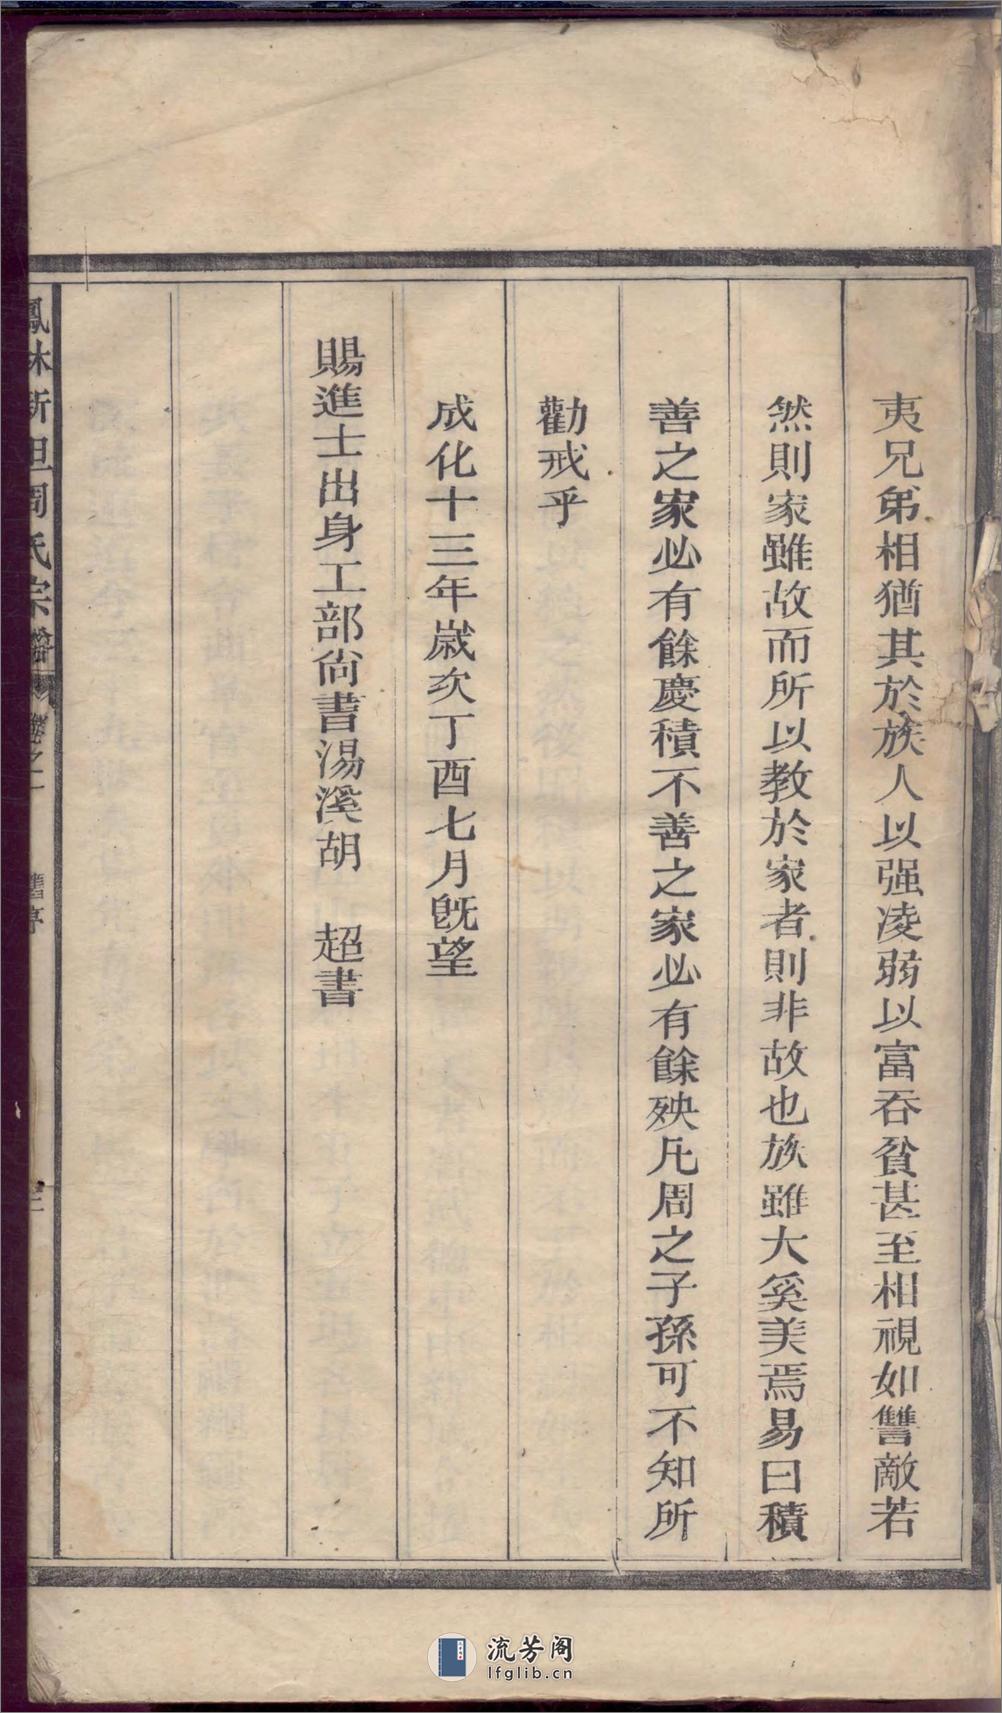 夷兄弟相猶其於族人以强凌弱以富吞貧甚至相視如讐敵若
然則家雖故而所以教於家者則非故也族雖大奚美焉易曰積
善之家必有餘慶積不善之家必有餘殃凡周之子孫可不知所
勸戒乎
成化十三年嵗次丁酉七月旣望
賜進士出身工部尚書湯溪胡　超書
鳳林新坦周氏宗譜 卷之一 舊序 二
流芳阁
lfglib.cn